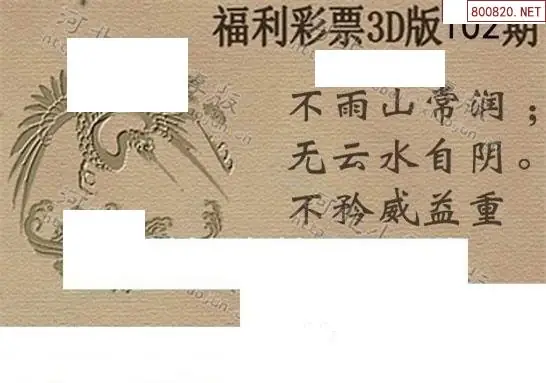 800820.NET
福利彩票3D版102期
不雨山常润；
无云水自阴。
不矜威益重